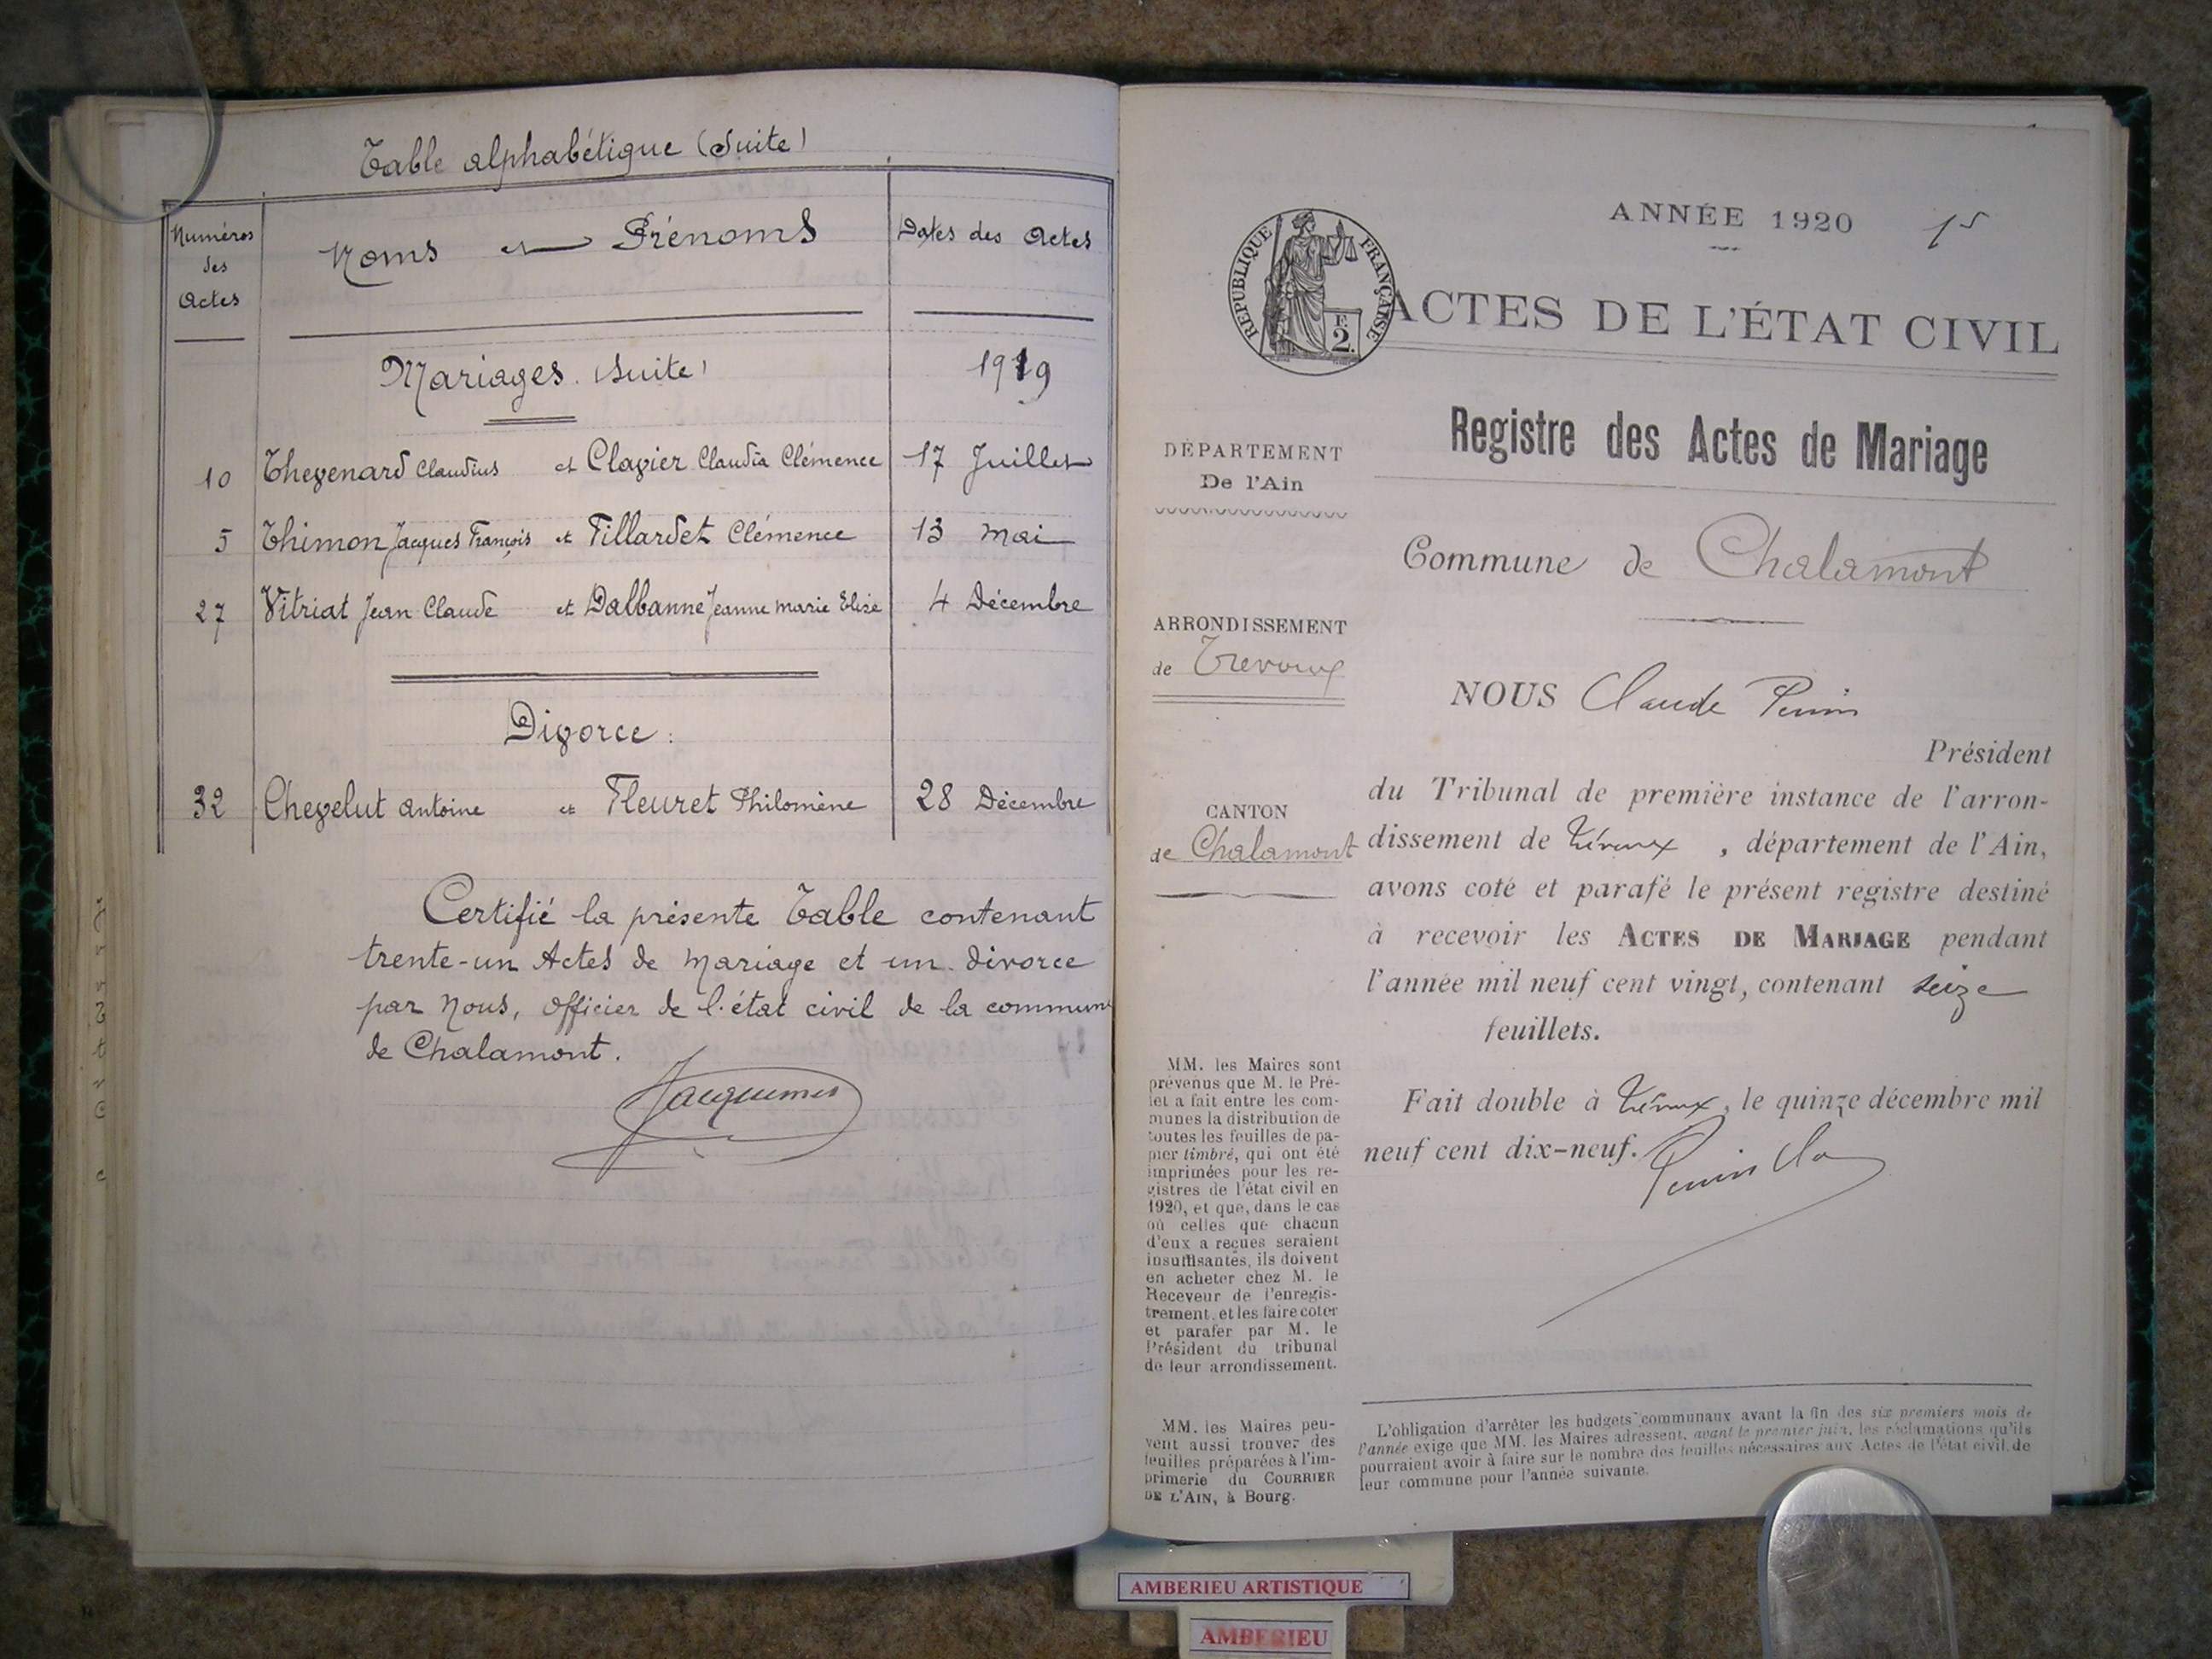 Table alphabétique (Suite)
Numéros des Actes
Noms et Prénoms
Dates des Actes
Mariages. (Suite) 1919
10 Thevenard Claudius et Clavier Claudia Clémence 17 Juillet
5 Thimon Jacques François et Tillardet Clémence 13 Mai
27 Vitriat Jean Claude et Dalbanne Jeanne Marie Elise 4 Décembre
Divorce :
32 Chevelut Antoine et Fleuret Philomène 28 Décembre
Certifié la présente Table contenant
trente-un Actes de Mariage et un divorce
par Nous, officier de l'état civil de la commune
de Chalamont.
ANNÉE 1920
RÉPUBLIQUE FRANÇAISE
F.
2.
ACTES DE L'ÉTAT CIVIL
Registre des Actes de Mariage
DÉPARTEMENT
De l'Ain
Commune de Chalamont
ARRONDISSEMENT
de Trevoux
CANTON
de Chalamont
NOUS Claude
Président
du Tribunal de première instance de l'arron-
dissement de Trévoux, département de l'Ain,
avons coté et parafé le présent registre destiné
à recevoir les ACTES DE MARIAGE pendant
l'année mil neuf cent vingt, contenant seize
feuillets.
Fait double à Trévoux, le quinze décembre mil
neuf cent dix-neuf.
MM. les Maires sont
prévenus que M. le Pré-
fet a fait entre les com-
munes la distribution de
toutes les feuilles de pa-
pier timbré, qui ont été
imprimées pour les re-
gistres de l'état civil en
1920, et que, dans le cas
où celles que chacun
d'eux a reçues seraient
insuffisantes, ils doivent
en acheter chez M. le
Receveur de l'enregis-
trement, et les faire coter
et parafer par M. le
Président du tribunal
de leur arrondissement.
MM. les Maires peu-
vent aussi trouver des
feuilles préparées à l'im-
primerie du COURRIER
DE L'AIN, à Bourg.
L'obligation d'arrêter les budgets communaux avant la fin des six premiers mois de
l'année exige que MM. les Maires adressent, avant le premier juin, les réclamations qu'ils
pourraient avoir à faire sur le nombre des feuilles nécessaires aux Actes de l'état civil de
leur commune pour l'année suivante.
AMBERIEU ARTISTIQUE
AMBERIEU